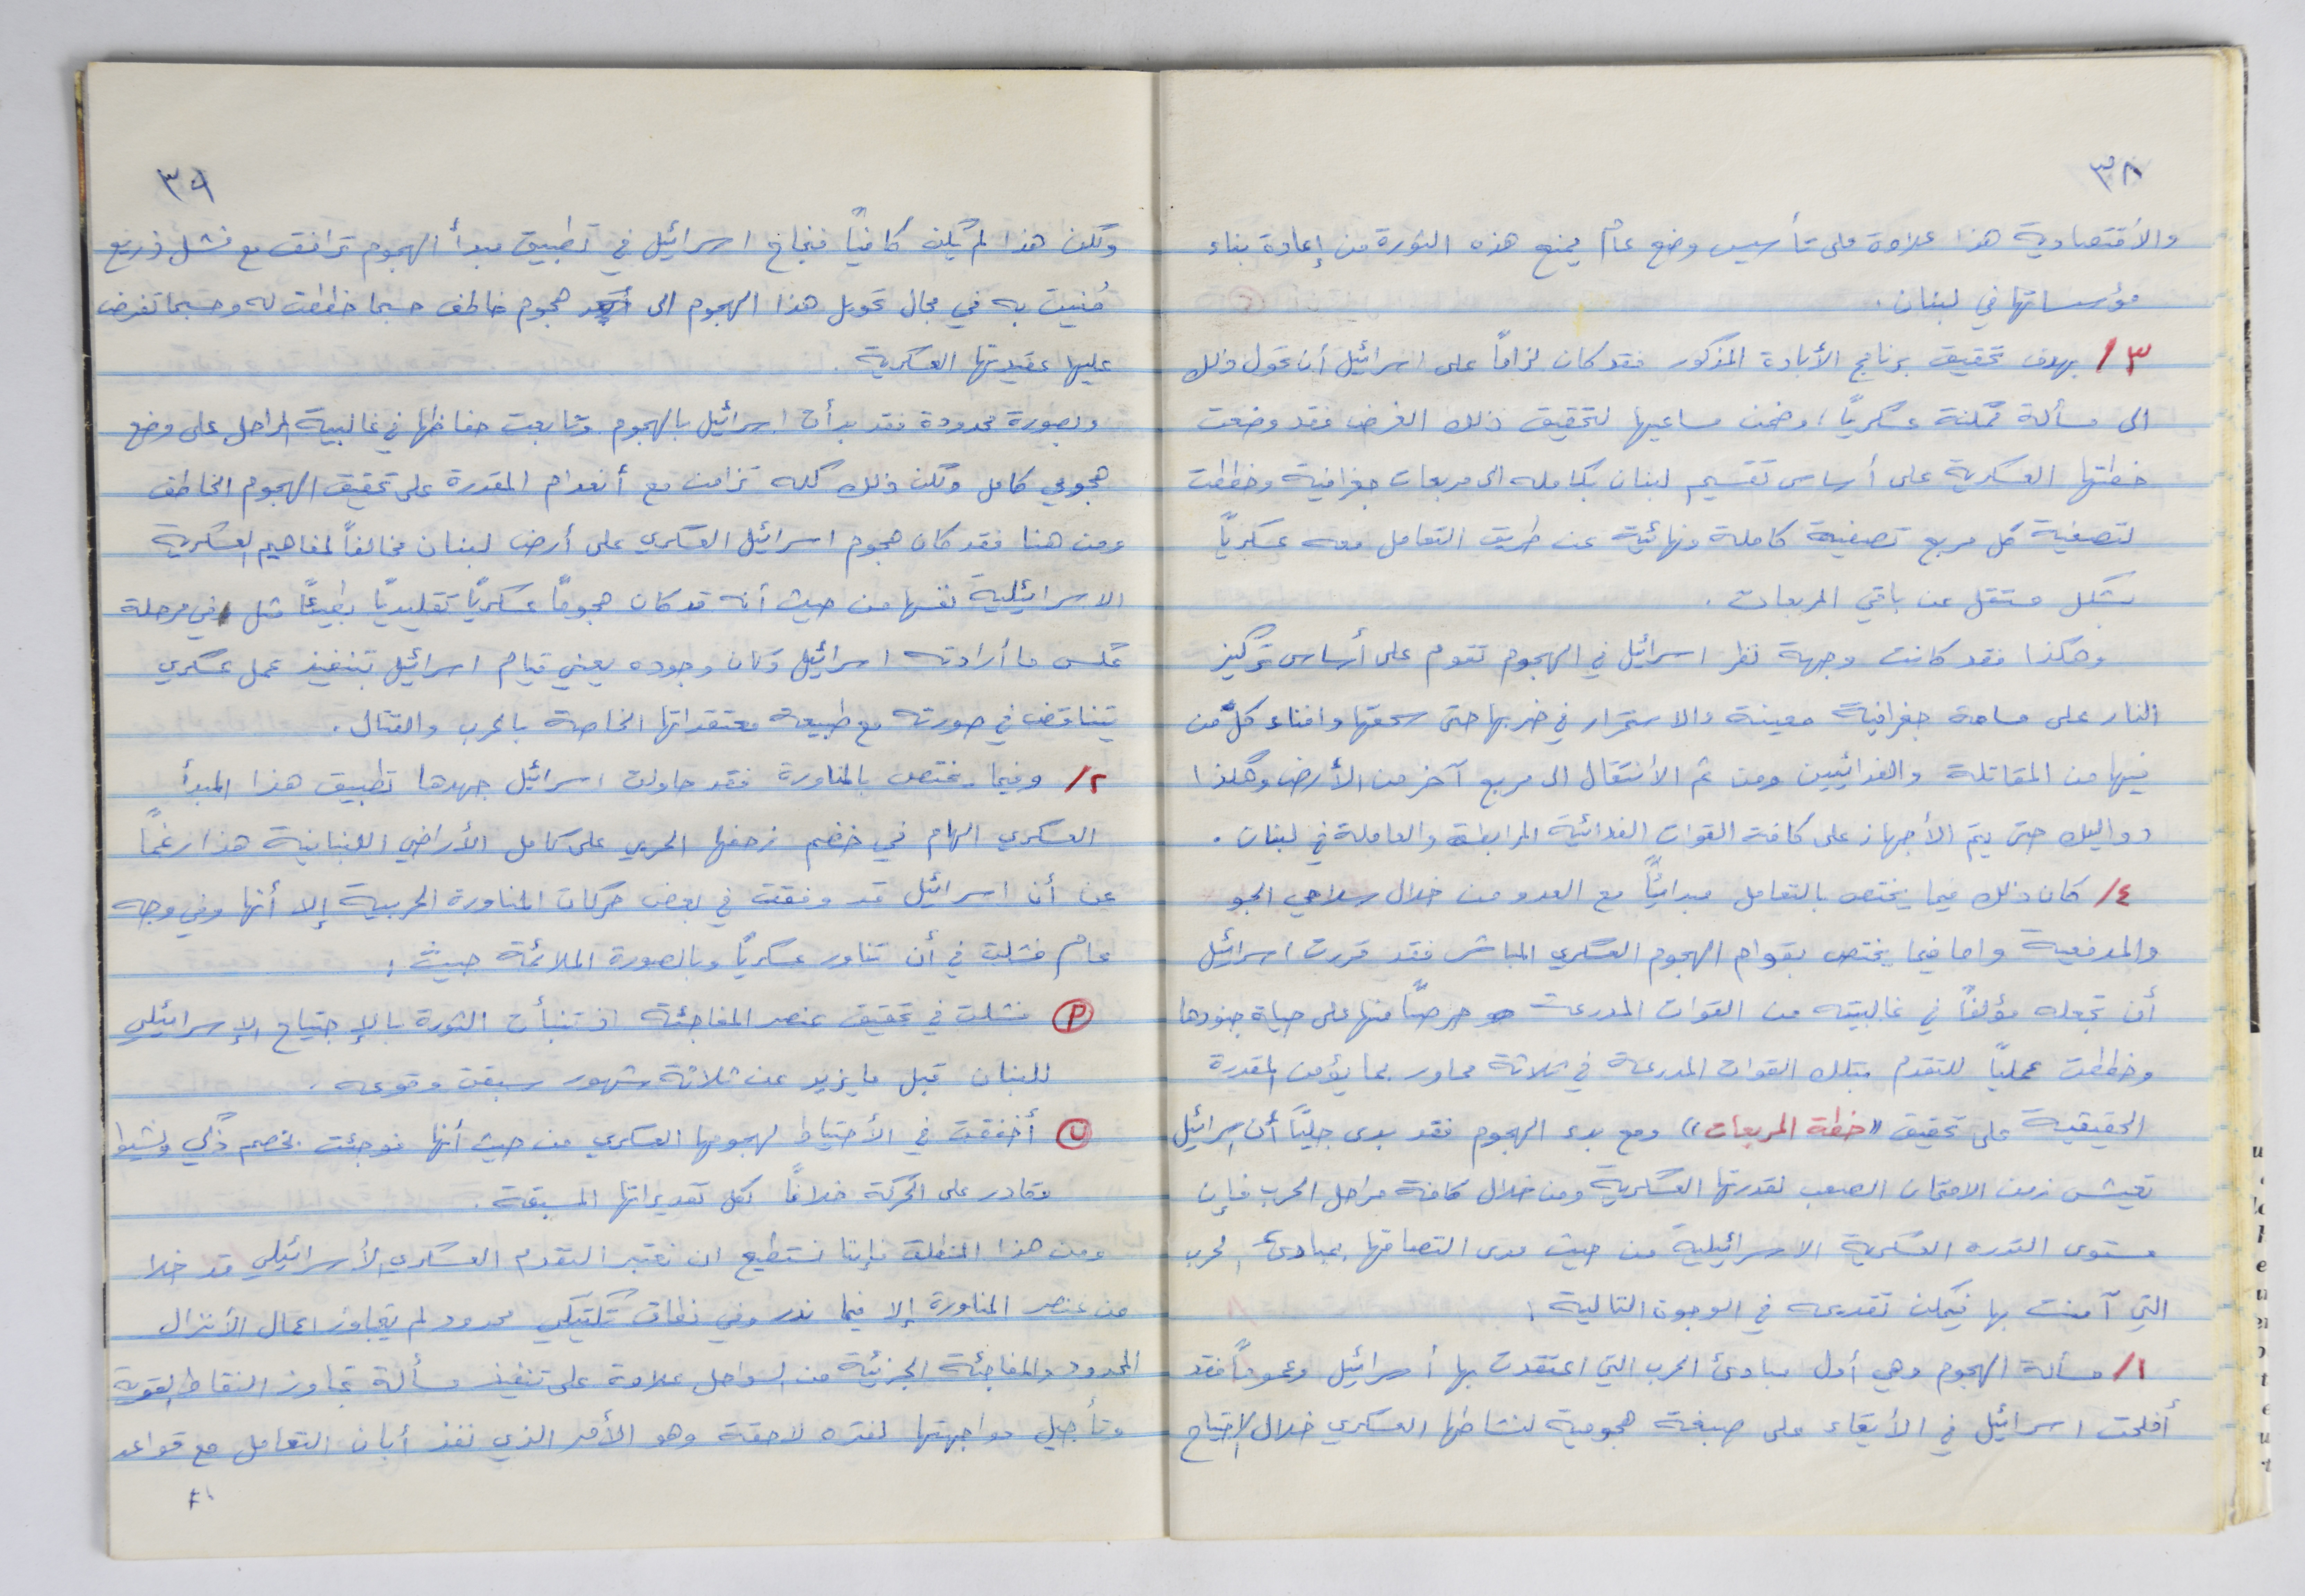 ٣٨
والأقتصادية هذا علاوة على تأسيس وضع عام يمنع هذه الثورة من إعادة بناء
مؤسساتها في لبنان .
٣/ بهدف تحقيق برنامج الأبادة المذكور فقد كان لزاماً على اسرائيل أن تحول ذلك
الى مسألة ممكنة عسكرياً ، وضمن مساعيها لتحقيق ذلك الغرض فقد وضعت
خطتها العسكرية على أساس تقسيم لبنان بكامله الى مربعات جغرافية وخططت
لتصفية كل مربع تصفية كاملة ونهائية عن طريق التعامل معه عسكرياً
بشكل مستقل عن باقي المربعات .
وهكذا فقد كانت وجهة نظر اسرائيل في الهجوم تقوم على أساس تركيز
النار على مساحة جغرافية معينة والاستمرار في ضربها حتى سحقها وافناء كل من
فيها من المقاتلة والفدائيين ومن ثم الأنتقال الى مربع آخر من الأرض وهكذا
دواليك حتى يتم الأجهاز على كافة القوات الفدائية المرابطة والعاملة في لبنان .
٤/ كان ذلك فيما يختص بالتعامل مبدائياً مع العدو من خلال سلاحي الجو
والمدفعية واما فيما يختص بقوام الهجوم العسكري المباشر فقد قررت اسرائيل
أن تجعله مؤلفاً في غالبيته من القوات المدرعة حرصاً منها على حياة جنودها
وخططت عملياً للتقدم بتلك القوات المدرعة في ثلاثة محاور بما يؤمن المقدرة
الحقيقية على تحقيق "خطة المربعات" ومع بدء الهجوم فقد بدى جلياً أن اسرائيل
تعيش زمن الامتحان الصعب لقدرتها العسكرية ومن خلال كافة مراحل الحرب فإن
مستوى القدره العسكرية الاسرائيلية من حيث مدى التصاقها بمبادئ الحرب
التي آمنت بها فيمكن تقديمه في الوجوه التالية :
١/ مسألة الهجوم وهي أول مبادئ الحرب التي اعتقدت بها أسرائيل وعموماً فقد
أفلحت اسرائيل في الأبقاء على صبغة هجومية لنشاطها العسكري خلال الاجتياح
٣٩
ولكن هذا لم يكن كافياً فنجاح اسرائيل في تطبيق مبدأ الهجوم ترافق مع فشل ذريع
مُنيت به في مجال تحويل هذا الهجوم الى هجوم خاطف حسبما خططت له وحسبما تفرض
عليها عقيدتها العسكرية .
وبصورة محدودة فقد بدأت اسرائيل بالهجوم وتابعت حفاظها في غالبية المراحل على وضع
هجومي كامل ولكن ذلك كله تزامن مع أنعدام المقدرة على تحقيق الهجوم الخاطف
ومن هنا فقد كان هجوم اسرائيل العسكري على أرض لبنان مخالفاً لمفاهيم العسكرية
الاسرائيلية نفسها من حيث أنه قد كان هجوماً عسكرياً تقليدياً بطيئاً مثل في مرحلة
عكس ما أرادته اسرائيل وكان وجوده يعني قيام اسرائيل بتنفيذ عمل عسكري
يتناقض في صورته مع طبيعة معتقداتها الخاصة بالحرب والقتال .
٢/ وفيما يختص بالمناورة فقد حاولت اسرائيل جهدها تطبيق هذا المبدأ
العسكري الهام في خضم زحفها الحربي على كامل الأراضي اللبنانية هذا رغماً
عن أن اسرائيل قد وفقت في بعض حركات المناورة الحربية إلا أنها وفي وجه
عام فشلت في أن تناور عسكرياً وبالصورة الملائمة حيث :
(أ) فشلت في تحقيق عنصر المفاجئة اذ تنبأت الثورة بالإجتياح الإسرائيلي
للبنان قبل ما يزيد عن ثلاثة شهور سبقت وقوعه .
(ب) أخفقت في الأحتياط لهجومها العسكري من حيث أنها فوجئت بخصم ذكي ونشيط
وقادر على الحركة خلافاً لكل تقديراتها المسبقة .
ومن هذا المنطلق فإننا نستطيع ان نعتبر التقدم العسكري الأسرائيلي قد خلا
من عنصر المناورة إلا فيما ندر وفي نطاق تكتيكي محدود لم يتجاوز اعمال الأنزال
المحدود والمفاجئة الجزئية من السواحل علاوة على تنفيذ مسألة تجاوز النقاط القوية
وتأجيل مواجهتها لفتره لاحقة وهو الأمر الذي نفذ أبان التعامل مع قواعد